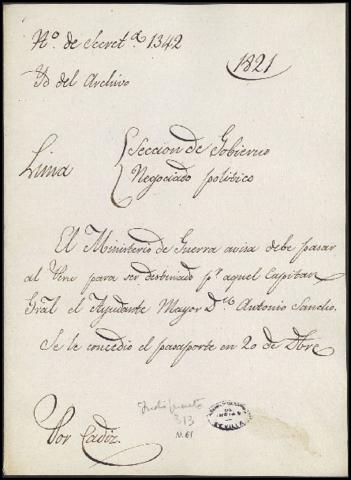 Nº de Secretª 1342
1821
Yd del Archivo
Lima
Seccion de Gobierno
Negociado politico
El Ministerio de Guerra avisa debe pasar
al para ser destinado pr aquel Capitan
Gral el Ayudante Mayor Dn Antonio
Se le concedio el pasaporte en 20 de Dbre
Por Cadiz.
Indiferente
313
N. 61
SEVILLA